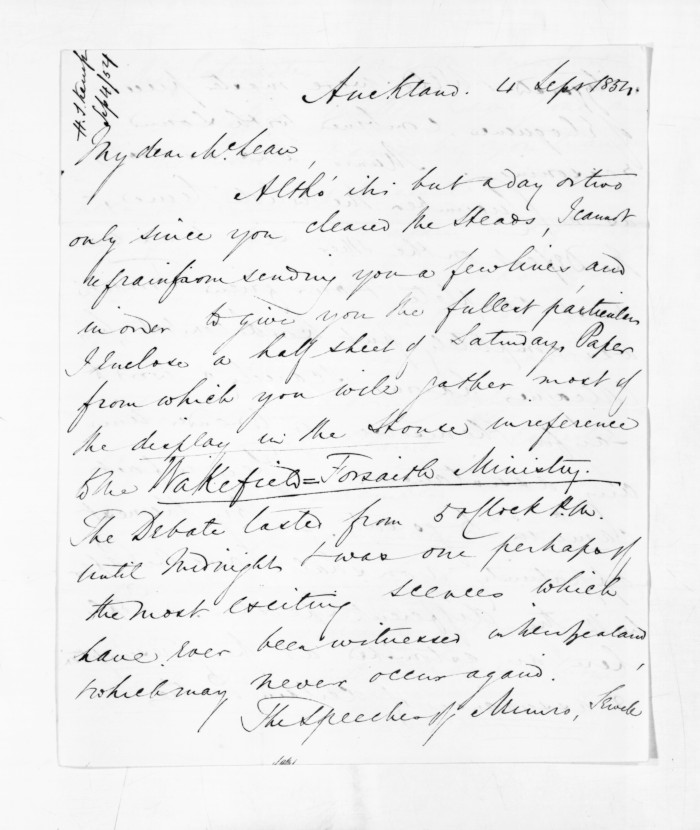 H. T. Kemp
Sep 4/54
Auckland. 4 Sept 1854.
My dear McLean,
Altho' it is but a day or two
only since you cleared the Heads, I cannot
refrain from sending you a few lines and
in order to give you the fullest particulars
I Enclose a half sheet of Saturdays Paper
from which you will gather most of
the display in the House in reference
to the Wakefield=Forsaith Ministry.
The Debate lasted from 5 oClock P.M.
until Midnight & was one perhaps of
the most exciting scenes which
have ever been witnessed in New Zealand,
& which may never occur again.
The speeches of Munro, Sewell